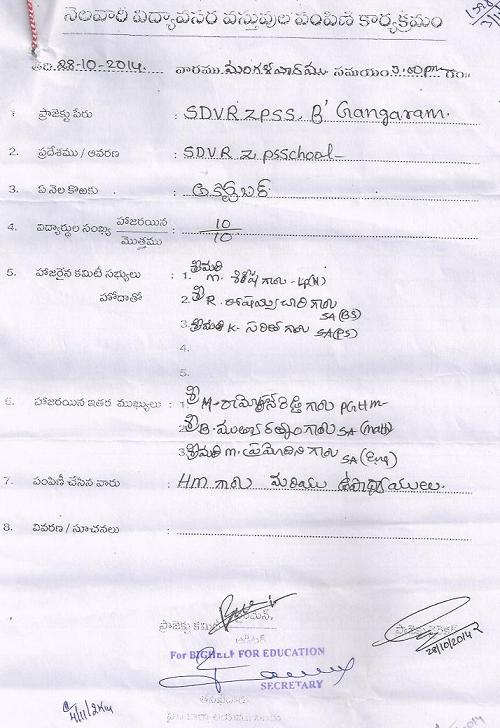 నెలవారి విద్యావసర వస్తువుల పంపిణి కార్యక్రమం
తేది 28-10-2014 వారము మంగళవారము సమయం 3:00 pm గం॥
1. ప్రాజెక్టు పేరు : SDVR ZPSS, B' Gangaram.
2. ప్రదేశము / ఆవరణ : SDVR Z psschool
3. ఏ నెల కొఱకు : అక్టోబర్
4. విద్యార్థుల సంఖ్య హాజరయిన / మొత్తము : 10 / 10
5. హాజరైన కమిటీ సభ్యులు : 1. శ్రీమతి m. శిరీష గారు
హోదాతో 2. శ్రీ R. గారు SA (BS)
3. శ్రీమతి K. సరిత గారు SA (PS)
4.
5.
6. హాజరయిన ఇతర ముఖ్యులు : 1. శ్రీ M. గారు PGHM
2. శ్రీ B. గారు SA (math)
3. శ్రీమతి m. ప్రమోదిని గారు SA (Eng)
7. పంపిణీ చేసిన వారు : HM గారు మరియు ఉపాధ్యాయులు.
8. వివరణ / సూచనలు :
ప్రాజెక్టు కమిటి
28/10/2014
For BIGHELP FOR EDUCATION
SECRETARY
4/11/2014